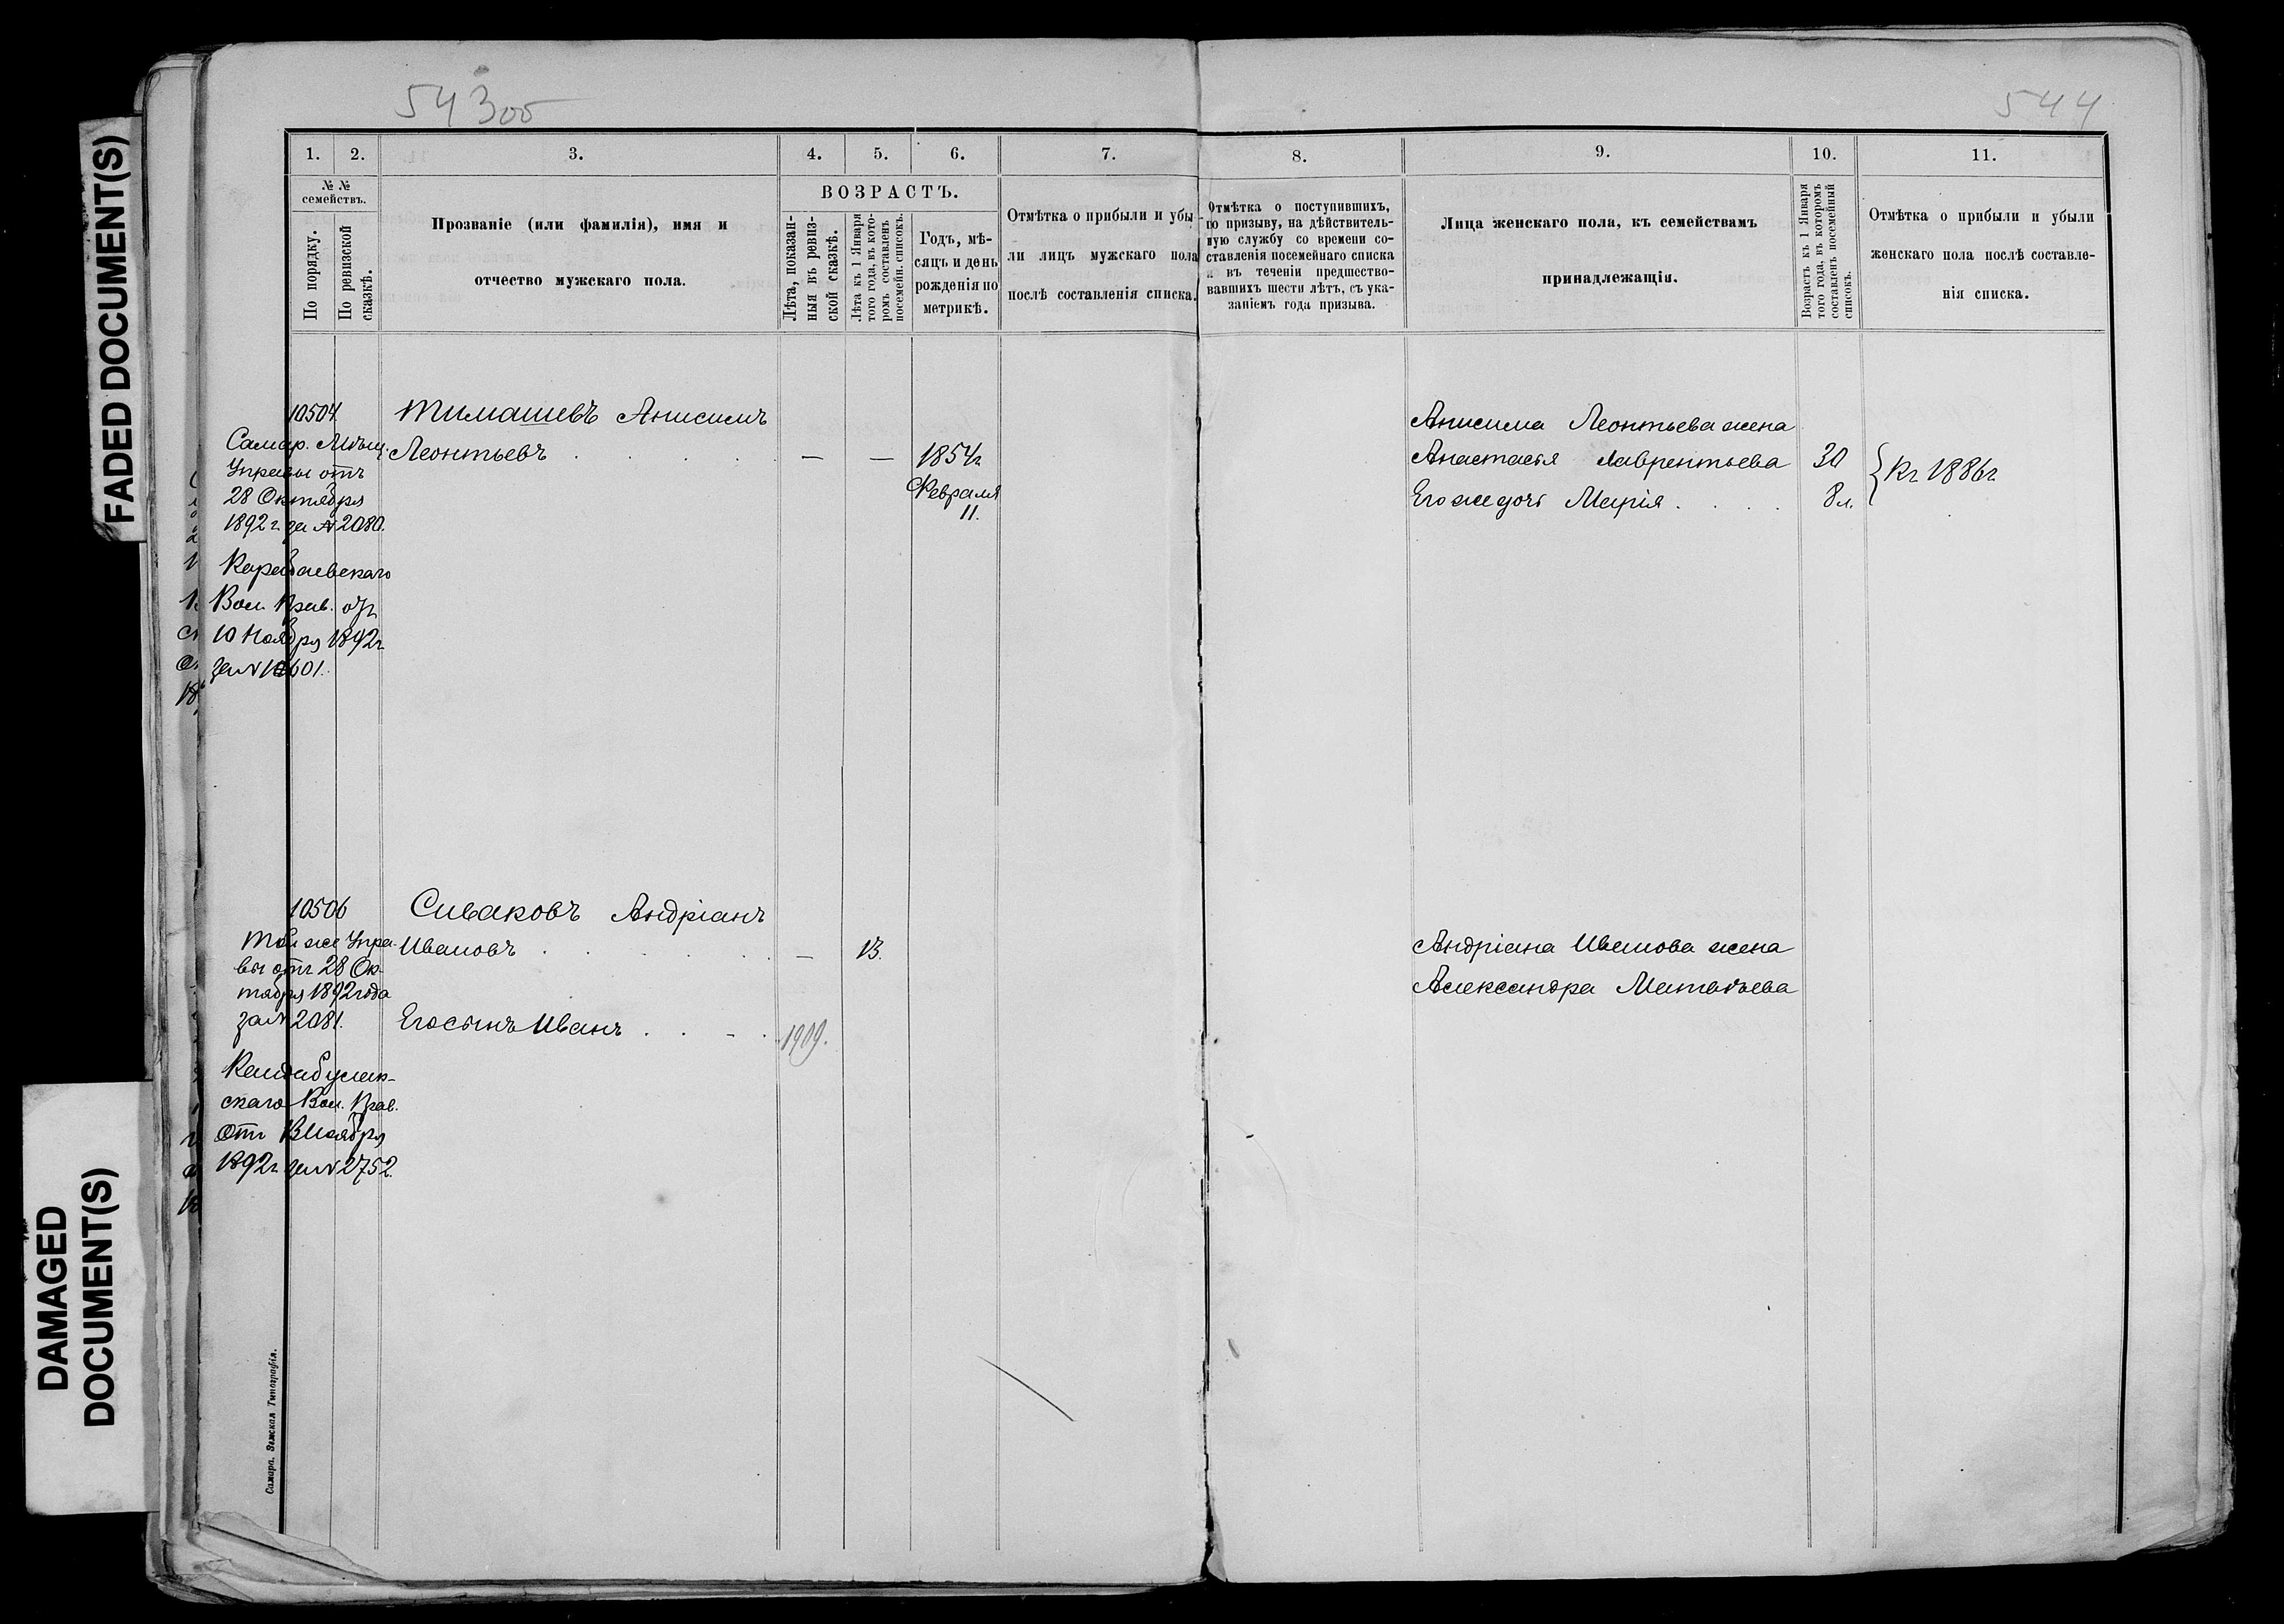 FADED DOCUMENT(S)
DAMAGED
DOCUMENT(S)
543об
544
1. 2. 3. 4. 5. 6. 7. 8. 9. 10. 11.
№ №
семействъ.
По порядку.
По ревизской
сказкѣ.
Прозваніе (или фамилія), имя и
отчество мужскаго пола.
ВОЗРАСТЪ.
Лѣта, показан-
ныя въ ревиз-
ской сказкѣ.
Лѣта къ 1 Января
того года, въ кото-
ромъ составленъ
посемейн. списокъ.
Годъ, мѣ-
сяцъ и день
рожденія по
метрикѣ.
Отмѣтка о прибыли и убы-
ли лицъ мужскаго пола
послѣ составленія списка.
Отмѣтка о поступившихъ,
по призыву, на дѣйствитель-
ную службу со времени со-
ставленія посемейнаго списка
и въ теченіи предшество-
вавшихъ шести лѣтъ, съ ука-
заніемъ года призыва.
Лица женскаго пола, къ семействамъ
принадлежащія.
Возрастъ къ 1 Января
того года, въ которомъ
составленъ посемейный
списокъ.
Отмѣтка о прибыли и убыли
женскаго пола послѣ составле-
нія списка.
10504
Самар. Мѣщ.
Управы отъ
28 Октября
1892 г. за № 2080.
Вол. Прав. отъ
10 Ноября 1892 г.
за №
Тимашевъ Анисимъ
Леонтьевъ . . . . . — — 1854 г.
Февраля
11.
Анисима Леонтьева жена
Анастасія Лаврентьева 30
Его же дочь Марія . . . . 8 л.
Къ 1886 г.
10506
Той же Упра-
вы отъ 28 Ок-
тября 1892 года
за № 2081.
скаго Вол. Прав.
отъ Ноября
1892 г. за № 2752.
Сиваковъ Андріанъ
Ивановъ . . . . . — 13.
Его сынъ Иванъ . . . . 1909.
Андріана Иванова жена
Александра Матвѣева
Самара. Земская Типографія.